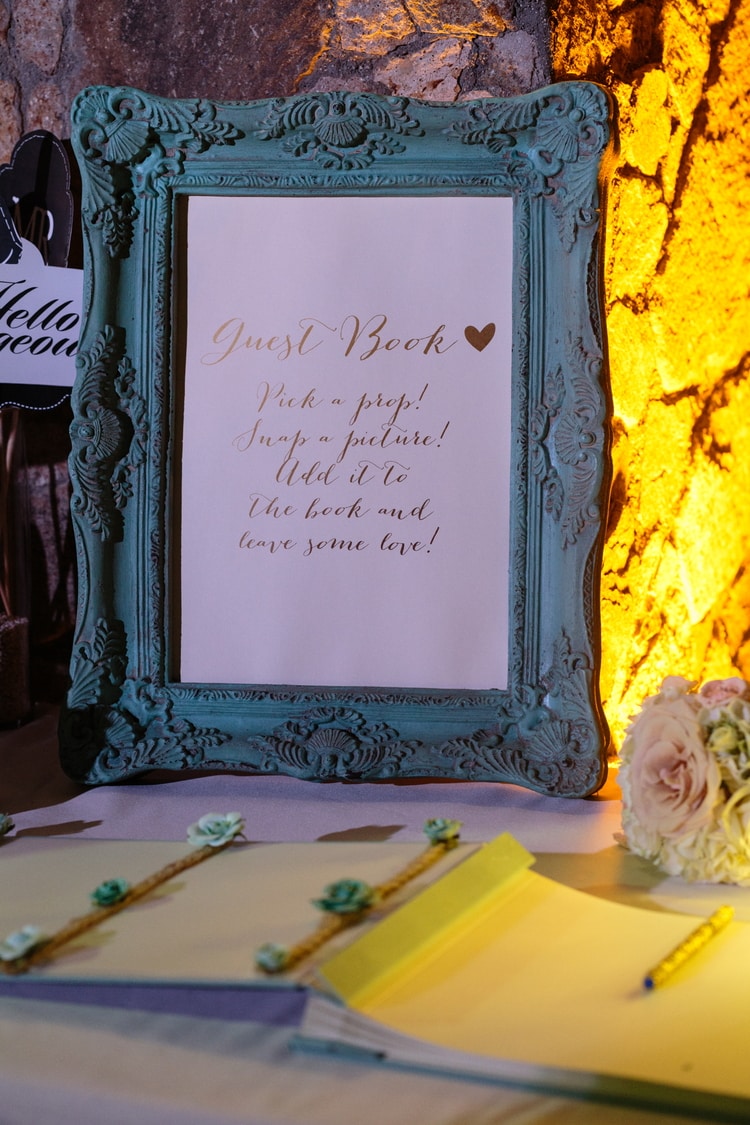 Guest Book
Pick a prop!
Snap a picture!
Add it to
the book and
leave some love!
Hello